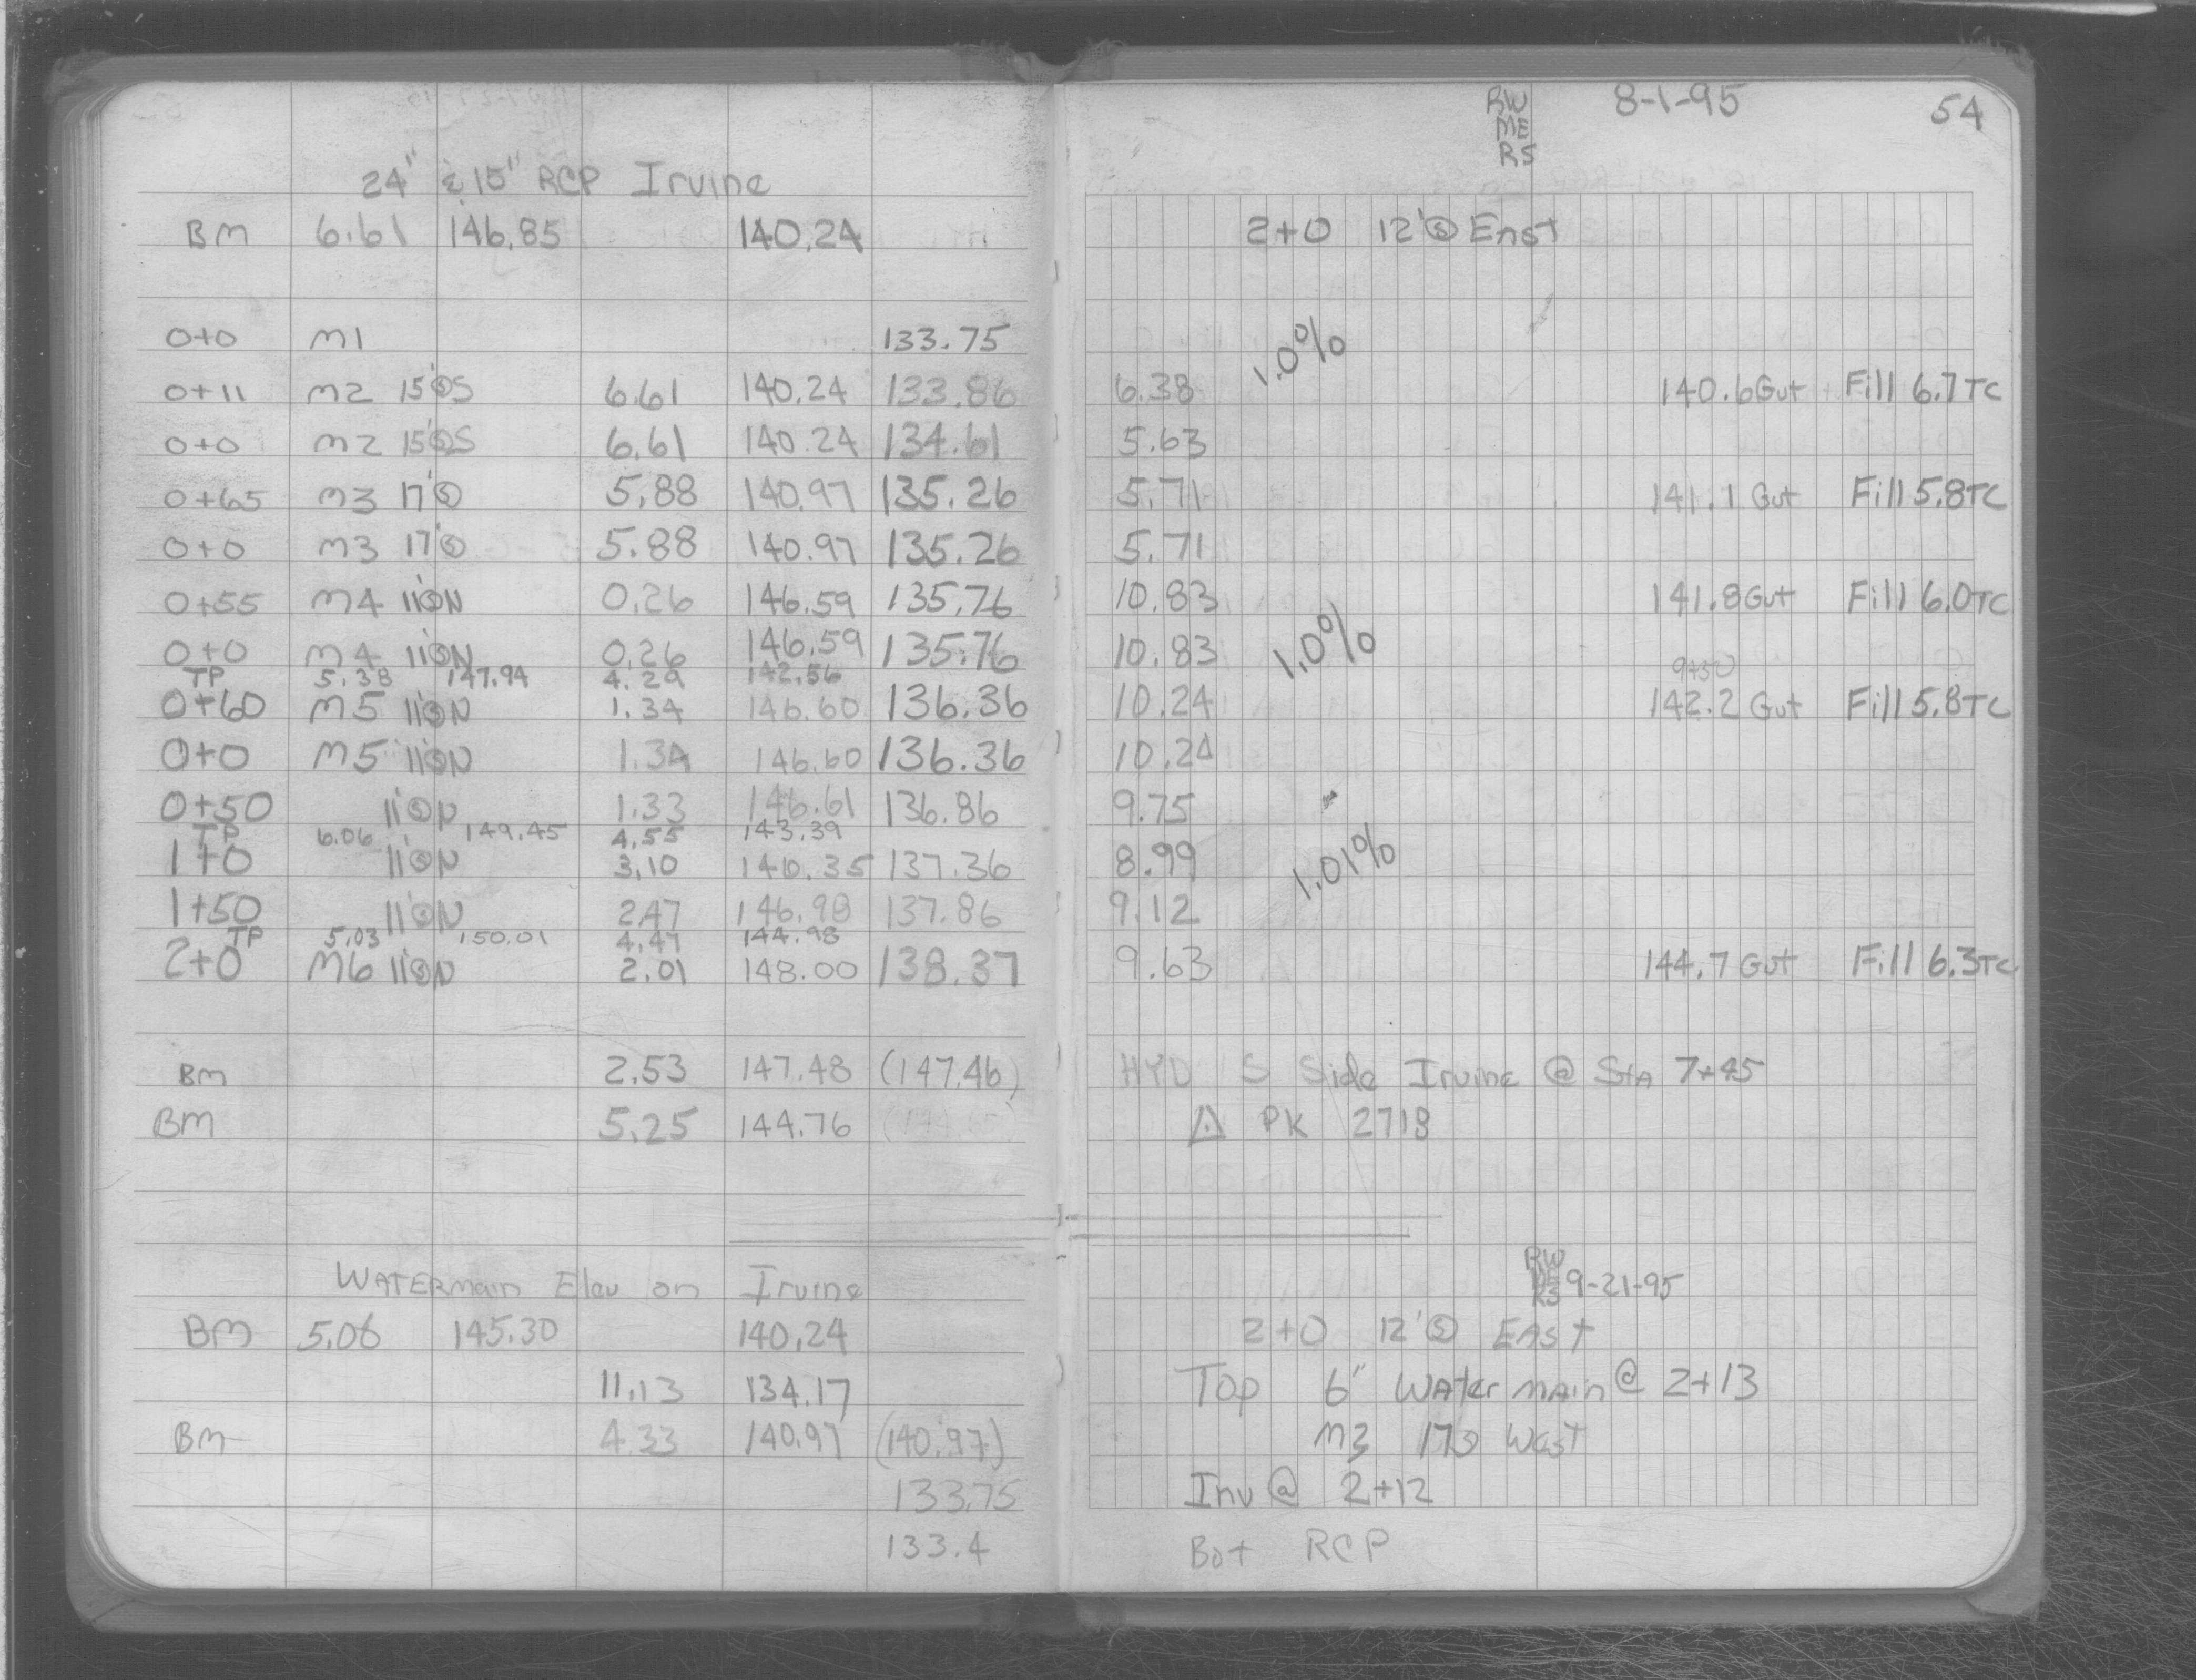 RW 8-1-95 54
ME
RS
24" & 15" RCP Irvine
BM 6.61 146.85 140.24 2+0 12' Ⓢ East
0+0 M1 133.75 1.0%
0+11 M2 15'ⓈS 6.61 140.24 133.86 6.38 140.6 Gut Fill 6.7 TC
0+0 M2 15'ⓈS 6.61 140.24 134.61 5.63
0+65 M3 17'Ⓢ 5.88 140.97 135.26 5.71 141.1 Gut Fill 5.8 TC
0+0 M3 17'Ⓢ 5.88 140.97 135.26 5.71
0+55 M4 11'ⓈN 0.26 146.59 135.76 10.83 141.8 Gut Fill 6.0 TC
0+0 M4 11'ⓈN 0.26 146.59 135.76 10.83 1.0%
TP 5.38 147.94 4.29 142.56 9+50
0+60 M5 11'ⓈN 1.34 146.60 136.36 10.24 142.2 Gut Fill 5.8 TC
0+0 M5 11'ⓈN 1.34 146.60 136.36 10.24
0+50 11'ⓈN 1.33 146.61 136.86 9.75
TP 6.06 149.45 4.55 143.39
1+0 11'ⓈN 3.10 146.35 137.36 8.99 1.01%
1+50 11'ⓈN 2.47 146.98 137.86 9.12
TP 5.03 150.01 4.47 144.98
2+0 M6 11'ⓈN 2.01 148.00 138.37 9.63 144.7 Gut Fill 6.3 TC
BM 2.53 147.48 (147.46) HYD S Side Irvine @ Sta 7+45
BM 5.25 144.76 △ PK 2718
RW
Watermain Elev on Irvine 9-21-95
RS
BM 5.06 145.30 140.24 2+0 12' Ⓢ East
11.13 134.17 Top 6" Water main @ 2+13
BM 4.33 140.97 (140.97) M3 17Ⓢ West
133.75 Inv @ 2+12
133.4 Bot RCP